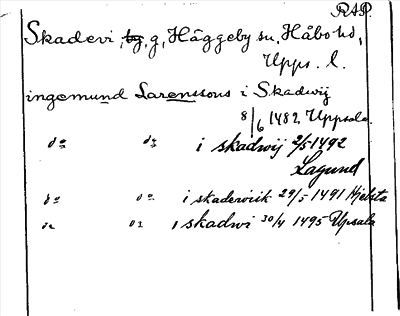 RAP.
Skadevi, by, g, Häggeby sn, Håbo hd,
Upps. l.
ingemund Larenssons i Skadwij
8/6 1482, Uppsala.
do do i skadwij 2/5 1492
Lagund
do do i skaderviik 29/5 1491 Hjelsta
do do i skadwi 30/4 1495 Upsala